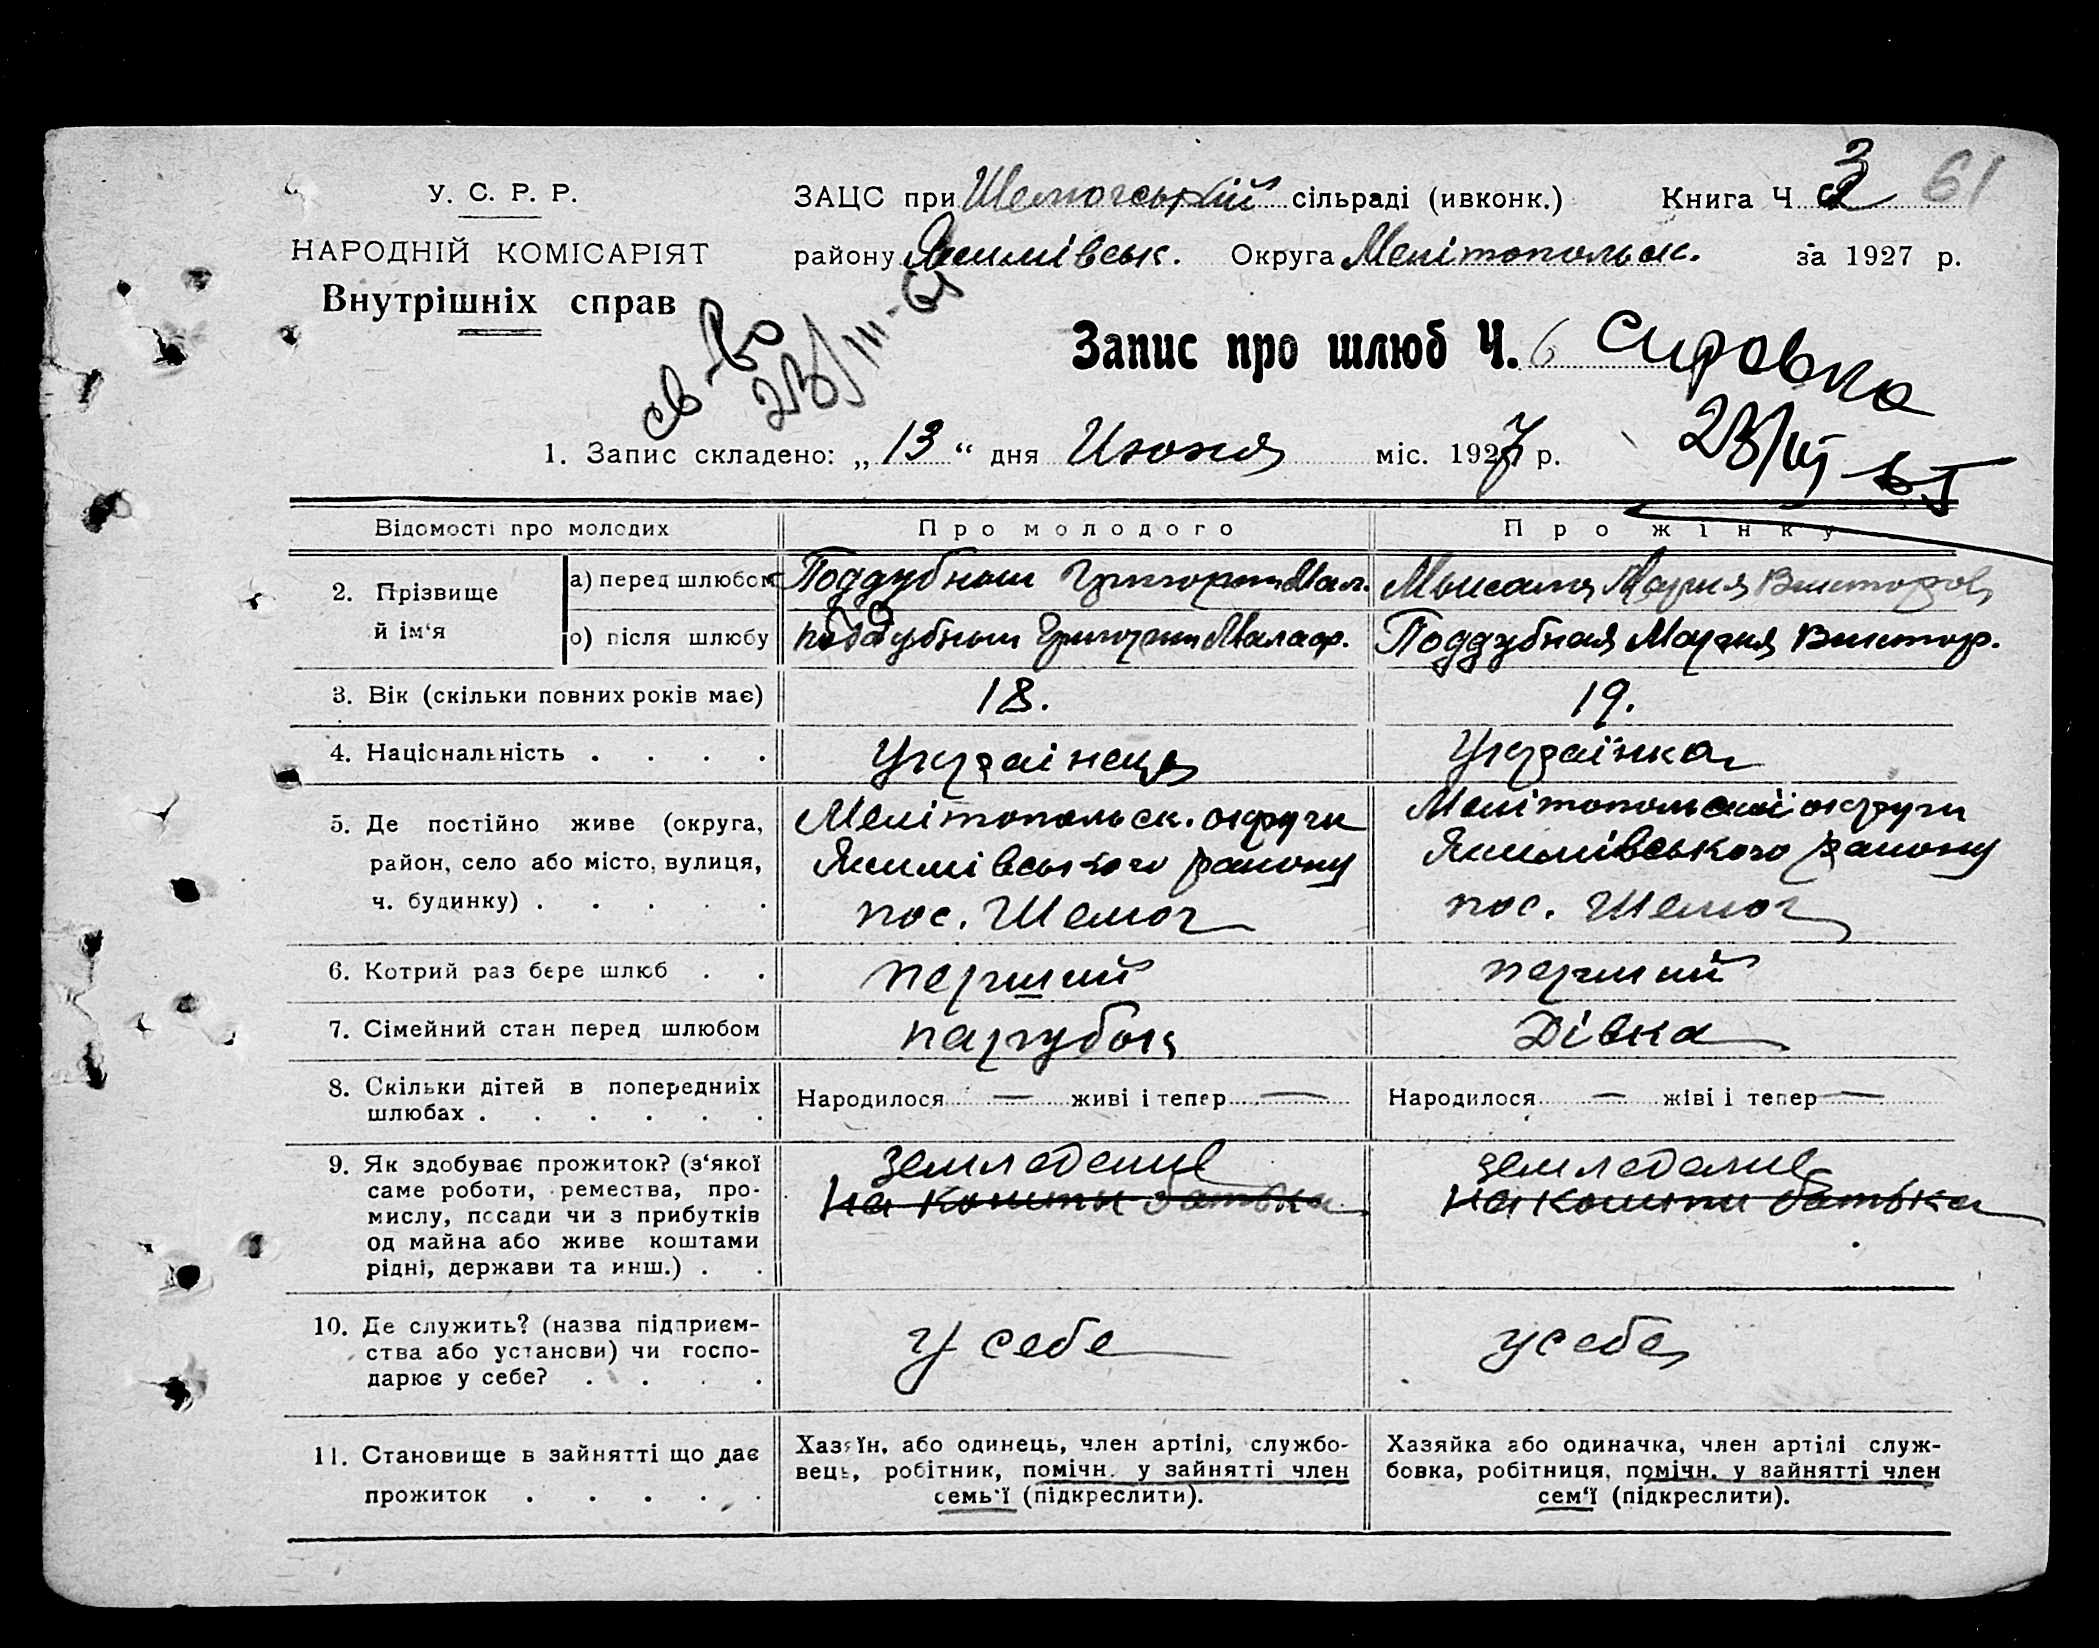 У. С. Р. Р.
НАРОДНІЙ КОМІСАРІЯТ
Внутрішніх справ
ЗАЦС при Шелюгській сільраді (ивконк.) Книга Ч. 3 61
району Якимівськ. Округа Мелітопольськ. за 1927 р.
св-во
23/III-65
Запис про шлюб Ч. 6 Справка
23/III 65
1. Запис складено: „13“ дня Июня міс. 1927 р.
Відомості про молодих Про молодого Про жінку
2. Прізвище й ім‘я
а) перед шлюбом Поддубный Григорий Мал. Мария Викторов
о) після шлюбу Поддубный Григорий Малаф. Поддубная Мария Виктор.
3. Вік (скільки повних років має) 18. 19.
4. Національність . . . . Українець Українка
5. Де постійно живе (округа,
район, село або місто, вулиця,
ч. будинку) . . . . .
Мелітопольск. округи
Якимівського району
пос. Шелюг
Мелітопольскої округи
Якимівського району
пос. Шелюг
6. Котрий раз бере шлюб . . перший перший
7. Сімейний стан перед шлюбом парубок Дівка
8. Скільки дітей в попередниіх
шлюбах . . . . . .
Народилося — живі і тепер —
Народилося — жіві і тепер —
9. Як здобуває прожиток? (з‘якої
саме роботи, ремества, про-
мислу, посади чи з прибутків
од майна або живе коштами
рідні, держави та инш.) . .
земледелие
на кошти батька
земледелие
на кошти батька
10. Де служить? (назва підприєм-
ства або установи) чи госпо-
дарює у себе? . . . .
у себе
у себе
11. Становище в зайнятті що дає
прожиток . . . . .
Хазяїн, або одинець, член артілі, службо-
вець, робітник, помічн. у зайнятті член
семь‘ї (підкреслити).
Хазяйка або одиначка, член артілі служ-
бовка, робітниця, помічн. у зайнятті член
сем‘ї (підкреслити).